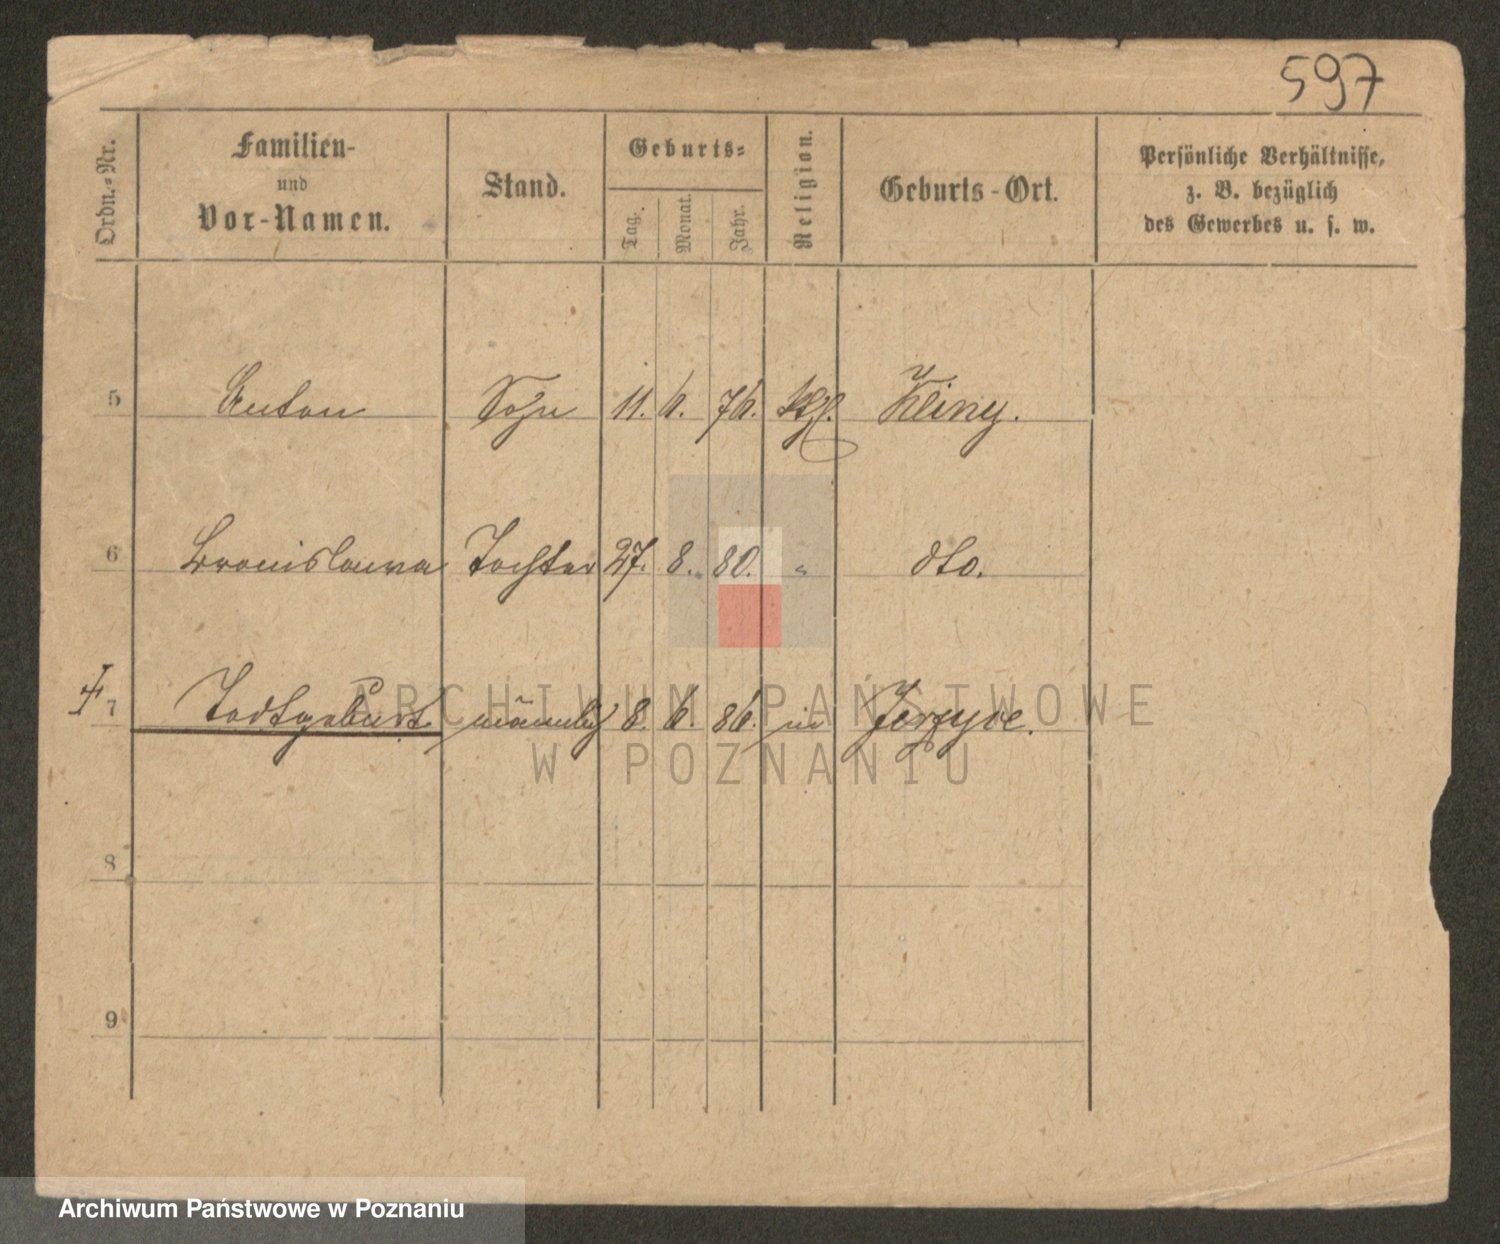 597
Ordn.-Nr.
Familien-
und
Vor-Namen.
Stand.
Geburts-
Tag.
Monat.
Jahr.
Religion.
Geburts-Ort.
Persönliche Verhältnisse,
z. B. bezüglich
des Gewerbes u. s. w.
5 Anton Sohn 11. 6. 76. kth. Kliny.
6 Bronislawa Tochter 27. 8. 80. " dto.
† 7 Todtgeburt männlich 8. 6. 86. in Jerzyce.
8
9
ARCHIWUM PAŃSTWOWE
W POZNANIU
Archiwum Państwowe w Poznaniu